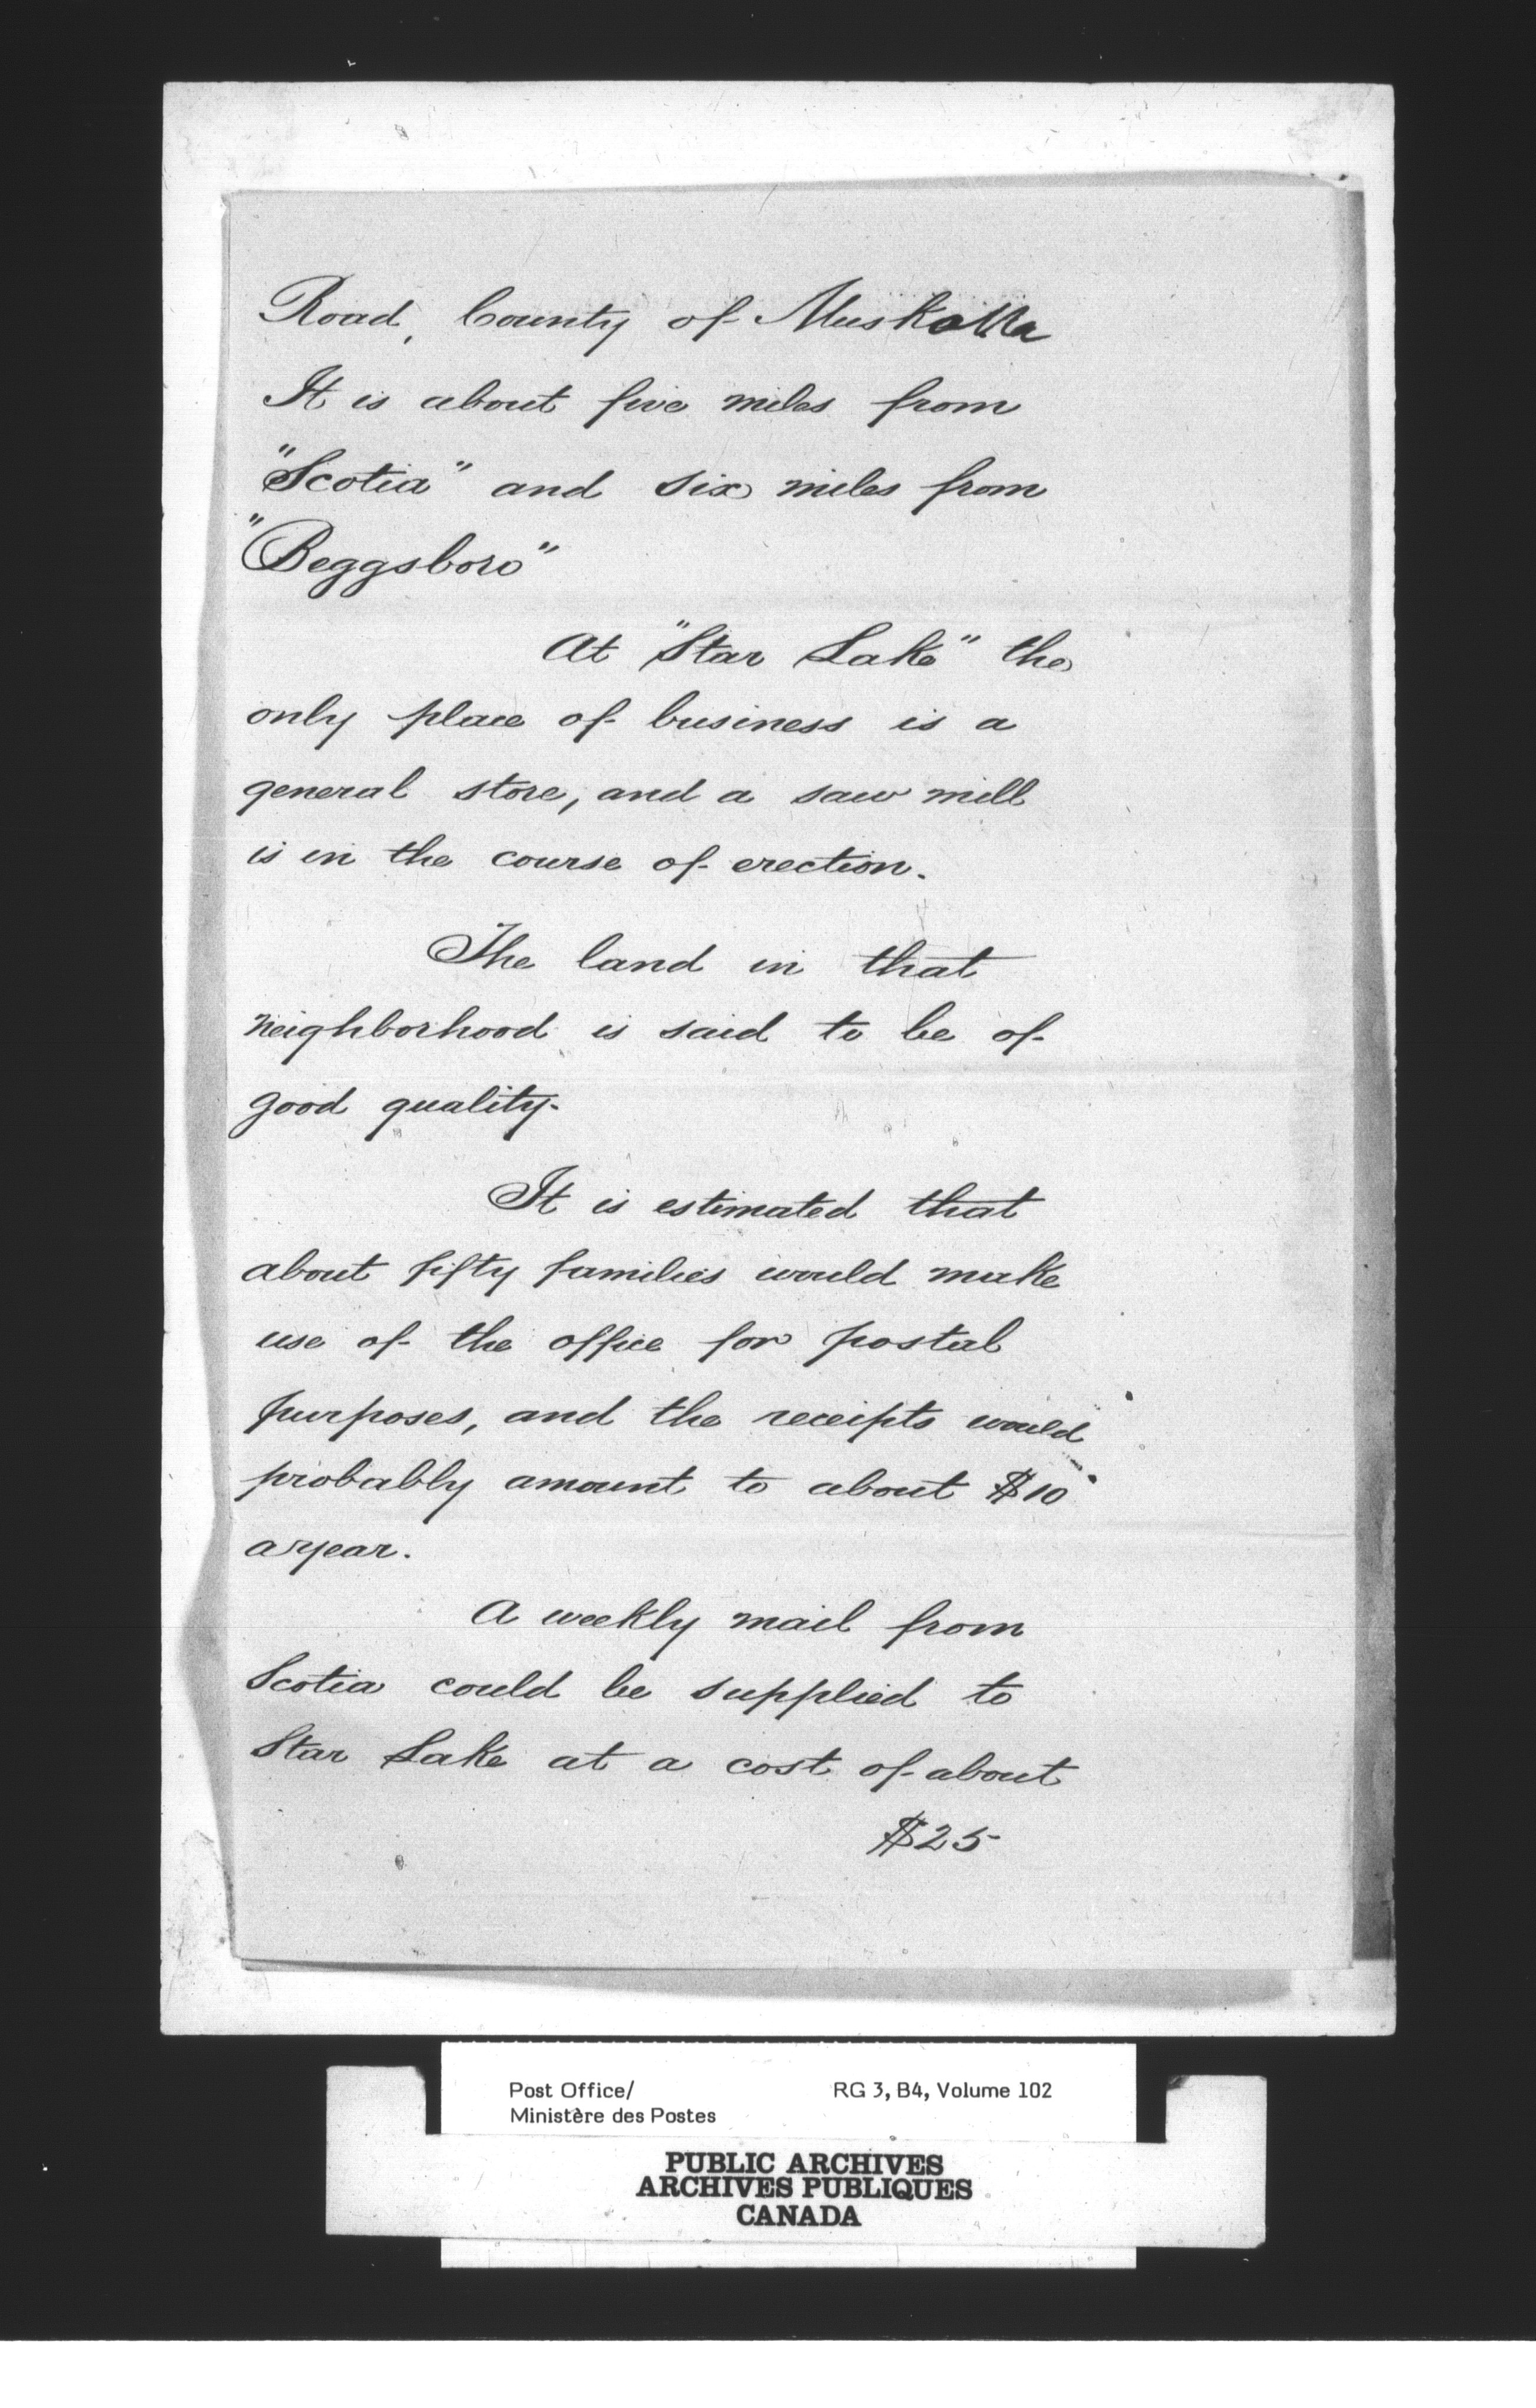 Road, County of Muskoka
It is about five miles from
"Scotia" and six miles from
"Beggsboro"
At "Star Lake" the
only place of business is a
general store, and a saw mill
is in the course of erection.
The land in that
neighborhood is said to be of
good quality.
It is estimated that
about fifty families would make
use of the office for postal
purposes, and the receipts would
probably amount to about $10
a year.
A weekly mail from
Scotia could be supplied to
Star Lake at a cost of about
$25
Post Office/
Ministère des Postes
RG 3, B4, Volume 102
PUBLIC ARCHIVES
ARCHIVES PUBLIQUES
CANADA